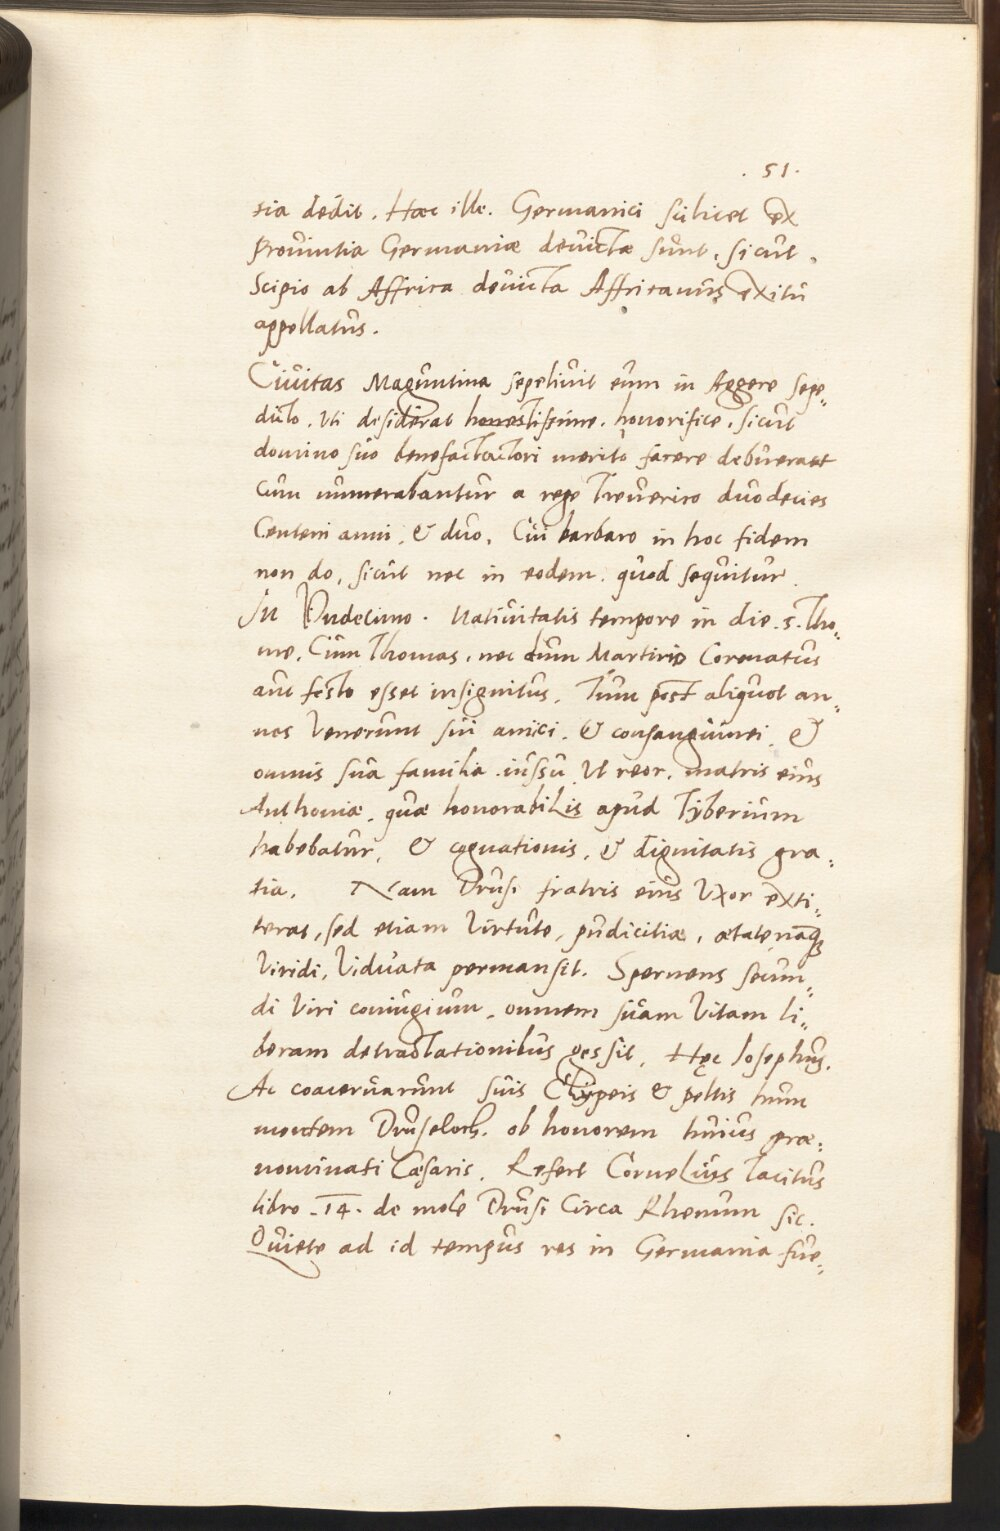 . 51 .
tia dedit. Haec ille. Germanici scilicet ex
Provintia Germaniæ devictæ sunt, sicut.
Scipio ab Affrica devicta Affricanus exitu
appellatus.
Civitas Maguntina sepelivit eum in Aggere sepe„
dicto. Uti desiderat honestissime. honorifice. sicut
domino suo benefactactori merito facere debuerant
Cum numerabantur a rege Treverico duodecies
Centeni anni, & duo. Cui barbaro in hoc fidem
non do, sicut nec in eodem. quod sequitur.
In Undecimo. Nativitatis tempore in die. s. Tho„
me. Cum Thomas. nec dum Martirio Coronatus
aut festo esset insignitus. Tum post aliquot an„
nos Venerunt sui amici. & consanguinei, &
omnis sua familia iussu Ut reor. matris eius
Anthoniæ, quæ honorabilis apud Tyberium
habebatur, & cognationis, & dignitatis gra„
tia. Nam Drusi fratris eius Uxor exti„
terat, sed etiam Virtute, pudicitiæ, ætatenaque
Viridi, Viduata permansit. Spernens secun„
di Viri coniugium, omnem suam Vitam li„
beram detractationibus gessit. Hęc Iosephus.
Ac coacervarunt suis Clypeis & peltis hunc
montem Druseloch. ob honorem huius præ„
nominati Cæsaris. Refert Cornelius Tacitus
libro. 14. de mole Drusi Circa Rhenum sic.
Quiete ad id tempus res in Germania fue„